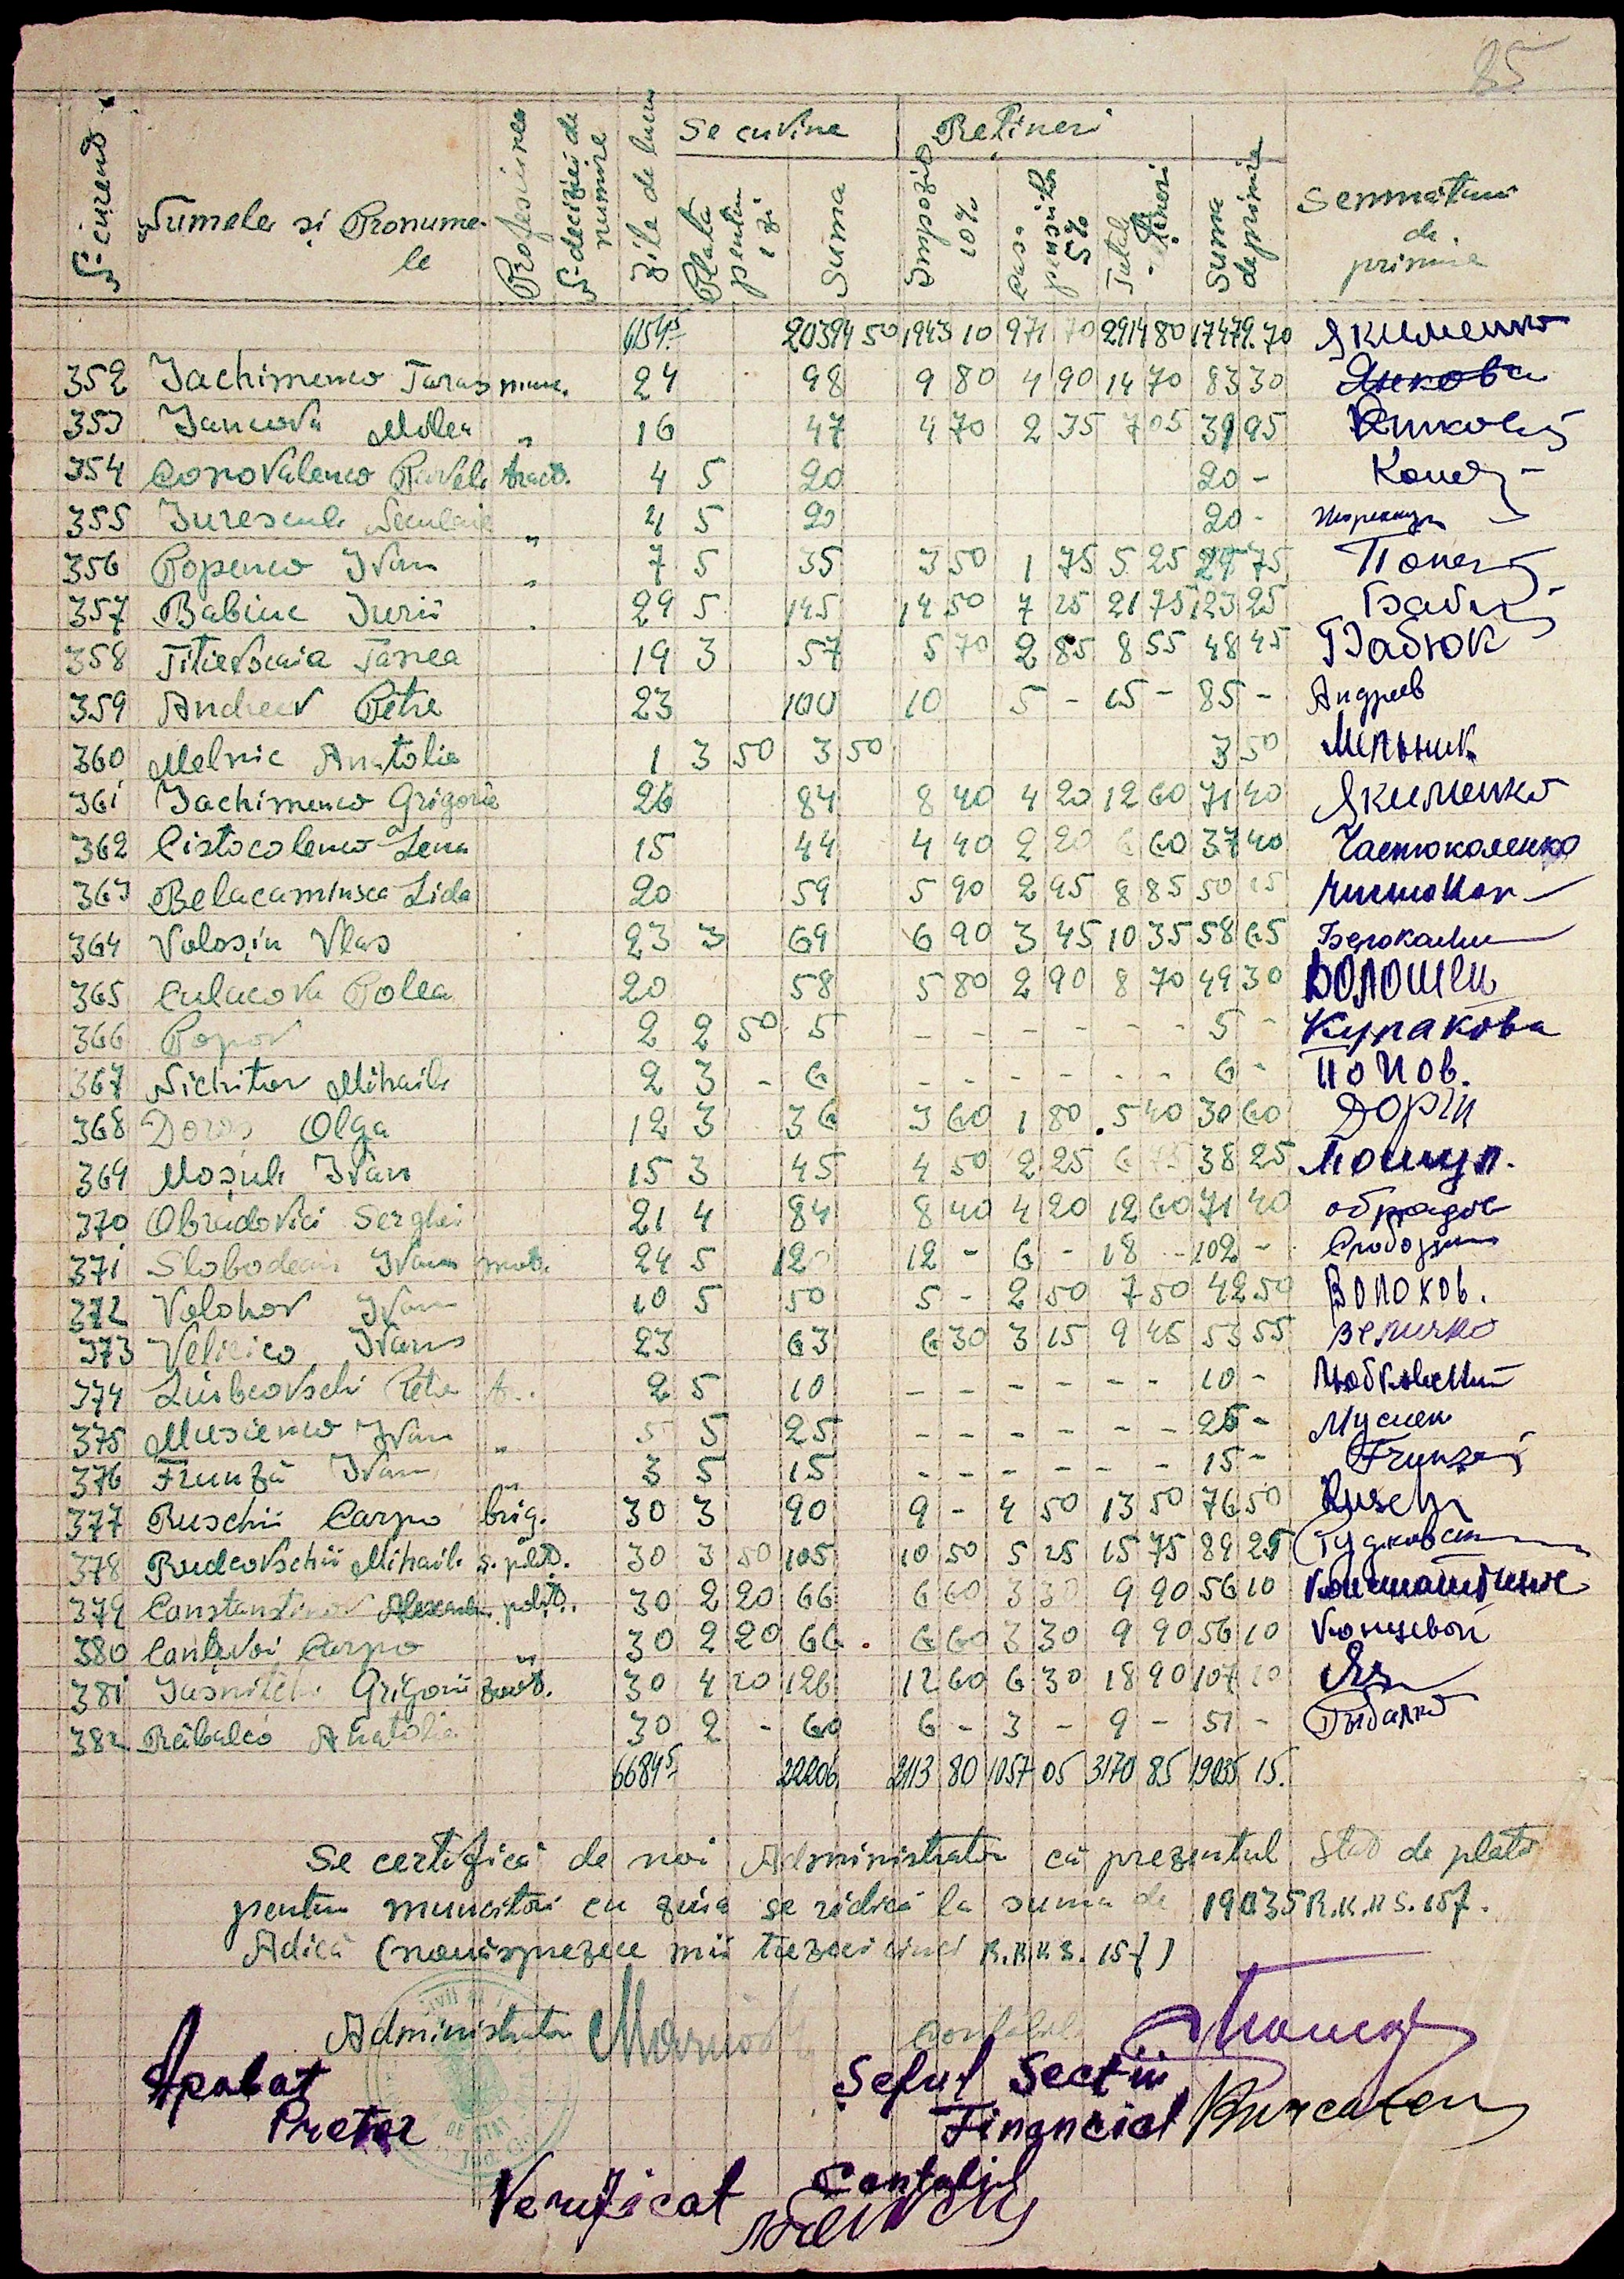 85
№ curent
Numele și Pronumele
Profesiunea
№ deciziei de numire
Zile de lucru
Se cuvine
Plata pentru 1 zi
Suma
Rețineri
Impozit 10%
Casa pensiilor 5%
Total rețineri
Suma de primire
Semnătura de primire
6154.5 20394 50 1943 10 971 70 2914 80 17479.70 Якименко
352 Iachimenco Taras munc. 24 98 9 80 4 90 14 70 83 30 Янкова
353 Iancova Milea " 16 47 4 70 2 35 7 05 39 95
354 Conovalenco Pavel tract. 4 5 20 20 -
355 Iurescul Neculaie " 4 5 20 20 -
356 Popenco Ivan " 7 5 35 3 50 1 75 5 25 29 75
357 Babiuc Iurii " 29 5 145 14 50 7 25 21 75 123 25
358 Titievscaia Tanea 19 3 57 5 70 2 85 8 55 48 45 Бабюк
359 Andreev Petre 23 100 10 5 - 15 - 85 - Андреев
360 Melnic Anatolie 1 3 50 3 50 3 50 Мельник
361 Iachimenco Grigorie 26 84 8 40 4 20 12 60 71 40 Якименко
362 Cistocolenco Lena 15 44 4 40 2 20 6 60 37 40 Частоколенко
363 Belacaminsca Lida 20 59 5 90 2 95 8 85 50 15
364 Voloșin Vlas 23 3 69 6 90 3 45 10 35 58 65
365 Culacova Polea 20 58 5 80 2 90 8 70 49 30
366 Popov 2 2 50 5 - - - - - - 5 - Кулакова
367 Nichitov Mihail 2 3 - 6 - - - - - - 6 - Попов.
368 Doroș Olga 12 3 36 3 60 1 80 5 40 30 60
369 Moșul Ivan 15 3 45 4 50 2 25 6 75 38 25 Мошул.
370 Obradovici Serghei 21 4 84 8 40 4 20 12 60 71 40
371 Slobodean Ivan mot. 24 5 120 12 - 6 - 18 - 102 -
372 Volohov Ivan 10 5 50 5 - 2 50 7 50 42 50 Волохов.
373 Velicico Ivan 23 63 6 30 3 15 9 45 53 55 Величко
374 Liubcovschi Petre 2 5 10 - - - - - - 10 -
375 Musienco Ivan " 5 5 25 - - - - - - 25 - Мусиен
376 Frunză Ivan " 3 5 15 - - - - - - 15 - Frunză
377 Ruschii Carpo brig. 30 3 90 9 - 4 50 13 50 76 50
378 Rudcovschii Mihail 30 3 50 105 10 50 5 25 15 75 89 25
379 Constantinov Alexandru 30 2 20 66 6 60 3 30 9 90 56 10
380 Canțevoi Carpo " 30 2 20 66 6 60 3 30 9 90 56 10 Концевой
381 Iasnitchi Grigorii 30 4 20 126 12 60 6 30 18 90 107 10
382 Râbalco Anatolie 30 2 - 60 6 - 3 - 9 - 51 - Рыбалко
6684.5 22206 2113 80 1057 05 3170 85 19035 15.
Se certifică de noi Administrator că prezentul Stat de plată
pentru muncitori cu ziua se ridică la suma de 19035 R.K.K.S. 15f.
Adică (nouăsprezece mii trezeci cinci R.K.K.S. 15f)
Administrator
contabil
Aprobat
Pretor
Șeful Secții
Financial
Verificat
Contabil